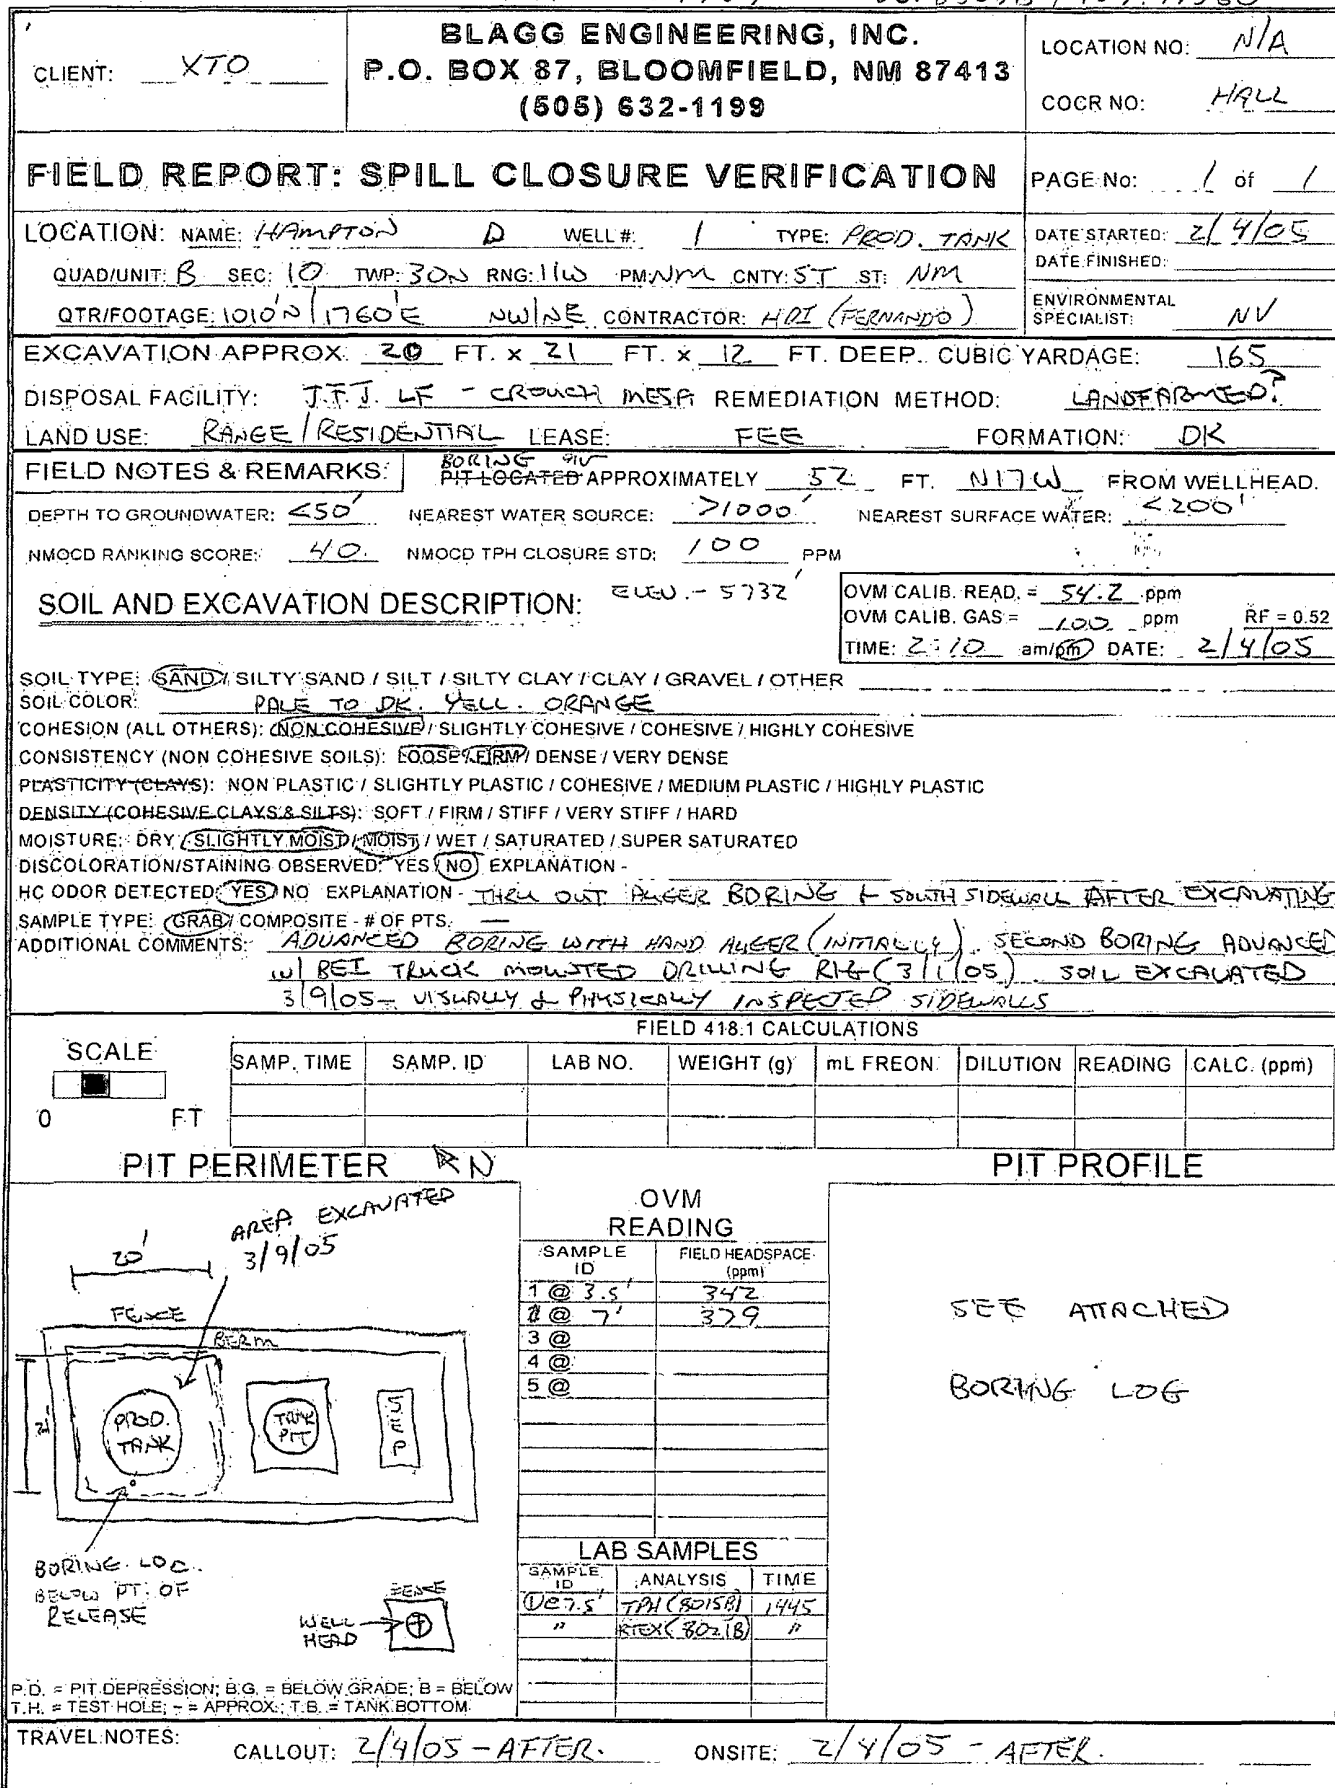 BLAGG ENGINEERING, INC.
P.O. BOX 87, BLOOMFIELD, NM 87413
(505) 632-1199
CLIENT: XTO
LOCATION NO: N/A
COCR NO: HALL
FIELD REPORT: SPILL CLOSURE VERIFICATION
PAGE No: 1 of 1
LOCATION: NAME: HAMPTON D WELL #: 1 TYPE: PROD. TANK
DATE STARTED: 2/4/05
DATE FINISHED:
QUAD/UNIT: B SEC: 10 TWP: 30N RNG: 11W PM: NM CNTY: ST ST: NM
QTR/FOOTAGE: 1010'N/1760'E NW/NE CONTRACTOR: HDI (FERNANDO)
ENVIRONMENTAL SPECIALIST: NV
EXCAVATION APPROX. 20 FT. x 21 FT. x 12 FT. DEEP. CUBIC YARDAGE: 165
DISPOSAL FACILITY: J.F.J. LF - CROUCH MESA REMEDIATION METHOD: LANDFARMED?
LAND USE: RANGE / RESIDENTIAL LEASE: FEE FORMATION: DK
FIELD NOTES & REMARKS: BORING PIT LOCATED APPROXIMATELY 52 FT. N17W FROM WELLHEAD.
DEPTH TO GROUNDWATER: <50' NEAREST WATER SOURCE: >1000' NEAREST SURFACE WATER: <200'
NMOCD RANKING SCORE: 40 NMOCD TPH CLOSURE STD: 100 PPM
SOIL AND EXCAVATION DESCRIPTION: ELEV. - 5732'
OVM CALIB. READ. = 54.2 ppm
OVM CALIB. GAS = 100 ppm RF = 0.52
TIME: 2:10 am/pm DATE: 2/4/05
SOIL TYPE: SAND / SILTY SAND / SILT / SILTY CLAY / CLAY / GRAVEL / OTHER
SOIL COLOR: PALE TO DK. YELL. ORANGE
COHESION (ALL OTHERS): NON COHESIVE / SLIGHTLY COHESIVE / COHESIVE / HIGHLY COHESIVE
CONSISTENCY (NON COHESIVE SOILS): LOOSE / FIRM / DENSE / VERY DENSE
PLASTICITY (CLAYS): NON PLASTIC / SLIGHTLY PLASTIC / COHESIVE / MEDIUM PLASTIC / HIGHLY PLASTIC
DENSITY (COHESIVE CLAYS & SILTS): SOFT / FIRM / STIFF / VERY STIFF / HARD
MOISTURE: DRY / SLIGHTLY MOIST / MOIST / WET / SATURATED / SUPER SATURATED
DISCOLORATION/STAINING OBSERVED: YES / NO EXPLANATION -
HC ODOR DETECTED: YES / NO EXPLANATION - THRU OUT AUGER BORING & SOUTH SIDEWALL AFTER EXCAVATING
SAMPLE TYPE: GRAB / COMPOSITE - # OF PTS. —
ADDITIONAL COMMENTS: ADVANCED BORING WITH HAND AUGER (INITIALLY). SECOND BORING ADVANCED
W/ BEI TRUCK MOUNTED DRILLING RIG (3/1/05). SOIL EXCAVATED
3/9/05 - VISUALLY & PHYSICALLY INSPECTED SIDEWALLS
FIELD 418.1 CALCULATIONS
SCALE
0 FT
SAMP. TIME SAMP. ID LAB NO. WEIGHT (g) mL FREON DILUTION READING CALC. (ppm)
PIT PERIMETER N
PIT PROFILE
AREA EXCAVATED
3/9/05
20'
FENCE
BERM
21'
PROD. TANK
TANK PIT
SEP
BORING LOC.
BELOW PT. OF
RELEASE
FENCE
WELL HEAD
OVM
READING
SAMPLE ID FIELD HEADSPACE (ppm)
1 @ 3.5' 342
1 @ 7' 379
3 @
4 @
5 @
LAB SAMPLES
SAMPLE ID ANALYSIS TIME
1@7.5' TPH (8015B) 1445
" BTEX (8021B) "
SEE ATTACHED
BORING LOG
P.D. = PIT DEPRESSION; B.G. = BELOW GRADE; B = BELOW
T.H. = TEST HOLE; ~ = APPROX.; T.B. = TANK BOTTOM
TRAVEL NOTES: CALLOUT: 2/4/05 - AFTER. ONSITE: 2/4/05 - AFTER.